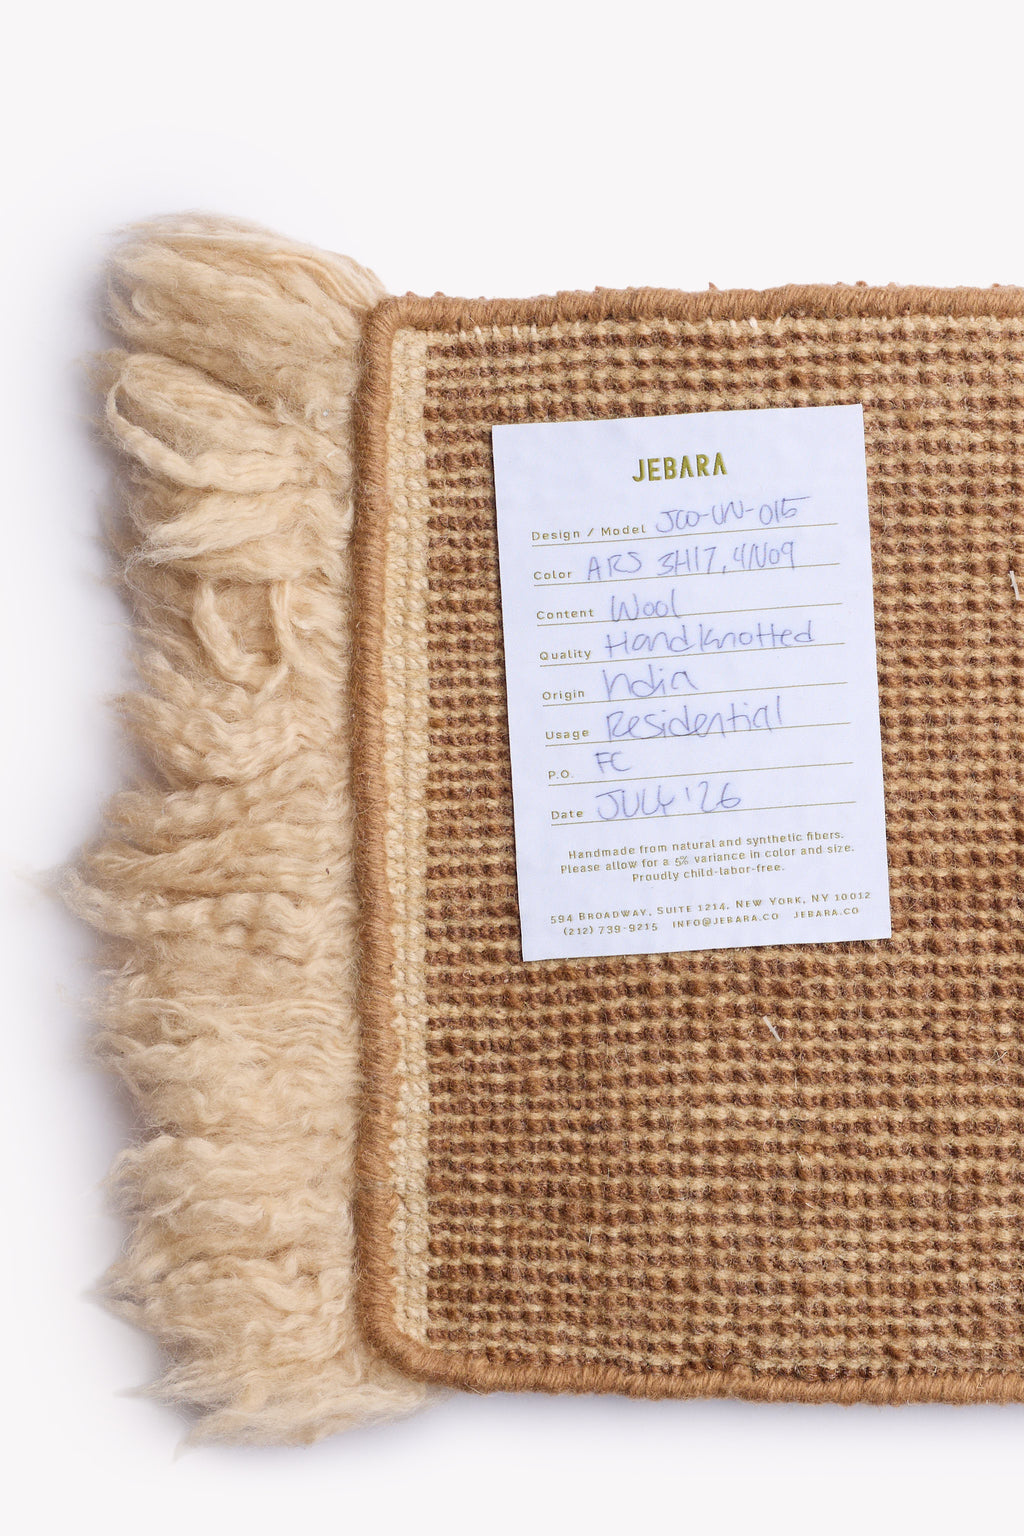 JEBARA
Design / Model JCO-UN-015
Color ARS 3H17, 4N09
Content Wool
Quality Hand Knotted
Origin India
Usage Residential
P.O. FC
Date JULY '26
Handmade from natural and synthetic fibers.
Please allow for a 5% variance in color and size.
Proudly child-labor-free.
594 BROADWAY, SUITE 1214, NEW YORK, NY 10012
(212) 739-9215 INFO@JEBARA.CO JEBARA.CO